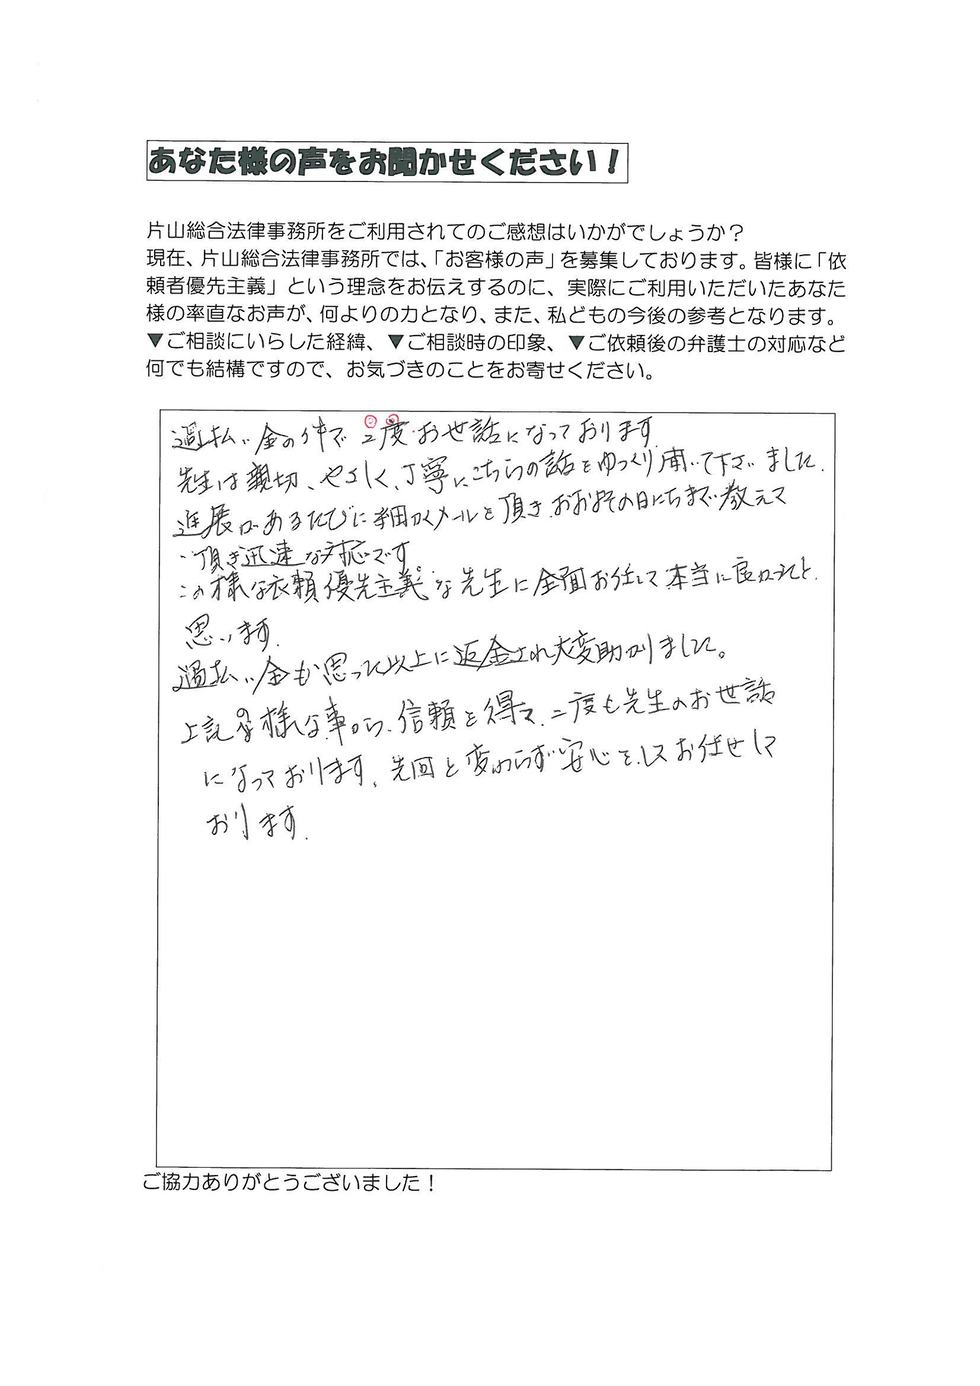 あなた様の声をお聞かせください！
片山総合法律事務所をご利用されてのご感想はいかがでしょうか？
現在、片山総合法律事務所では、「お客様の声」を募集しております。皆様に「依
頼者優先主義」という理念をお伝えするのに、実際にご利用いただいたあなた
様の率直なお声が、何よりの力となり、また、私どもの今後の参考となります。
▼ご相談にいらした経緯、▼ご相談時の印象、▼ご依頼後の弁護士の対応など
何でも結構ですので、お気づきのことをお寄せください。
過払い金の件で二度お世話になっております.
先生は親切、やさしく、丁寧にこちらの話をゆっくり聞いて下さいました.
進展があるたびに細かくメールを頂き、おおよその日にちまで教えて
頂き迅速な対応です.
この様な依頼優先主義な先生に全面お任して本当に良かったと
思います.
過払い金も思った以上に返金され大変助かりました。
上記の様な事から、信頼を得て、二度も先生のお世話
になっております、先回と変わらず安心をしてお任せして
おります.
ご協力ありがとうございました！